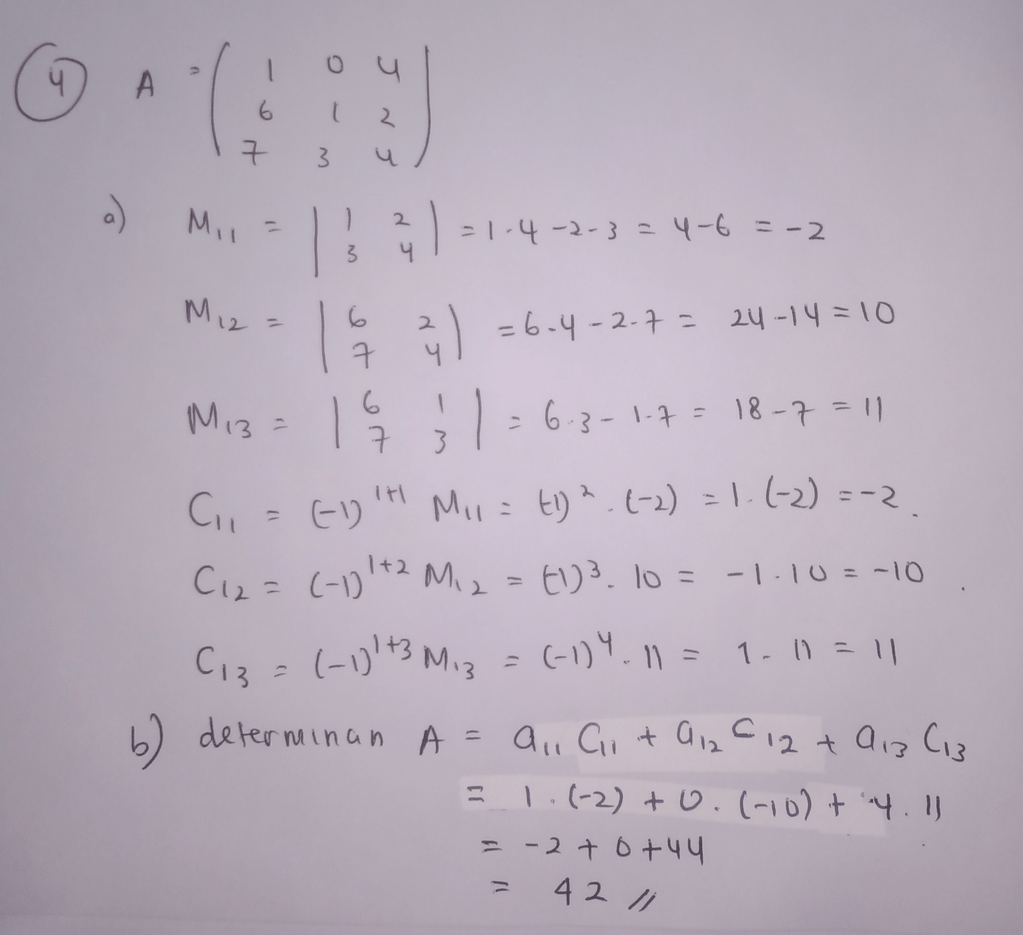 4 A = ( 1 0 4
6 1 2
7 3 4 )
a) M11 = | 1 2
3 4 | = 1·4 - 2·3 = 4-6 = -2
M12 = | 6 2
7 4 | = 6·4 - 2·7 = 24-14 = 10
M13 = | 6 1
7 3 | = 6·3 - 1·7 = 18-7 = 11
C11 = (-1)^1+1 M11 = (-1)^2 · (-2) = 1·(-2) = -2.
C12 = (-1)^1+2 M12 = (-1)^3 · 10 = -1·10 = -10.
C13 = (-1)^1+3 M13 = (-1)^4 · 11 = 1·11 = 11
b) determinan A = a11 C11 + a12 C12 + a13 C13
= 1·(-2) + 0·(-10) + 4·11
= -2 + 0 + 44
= 42 //